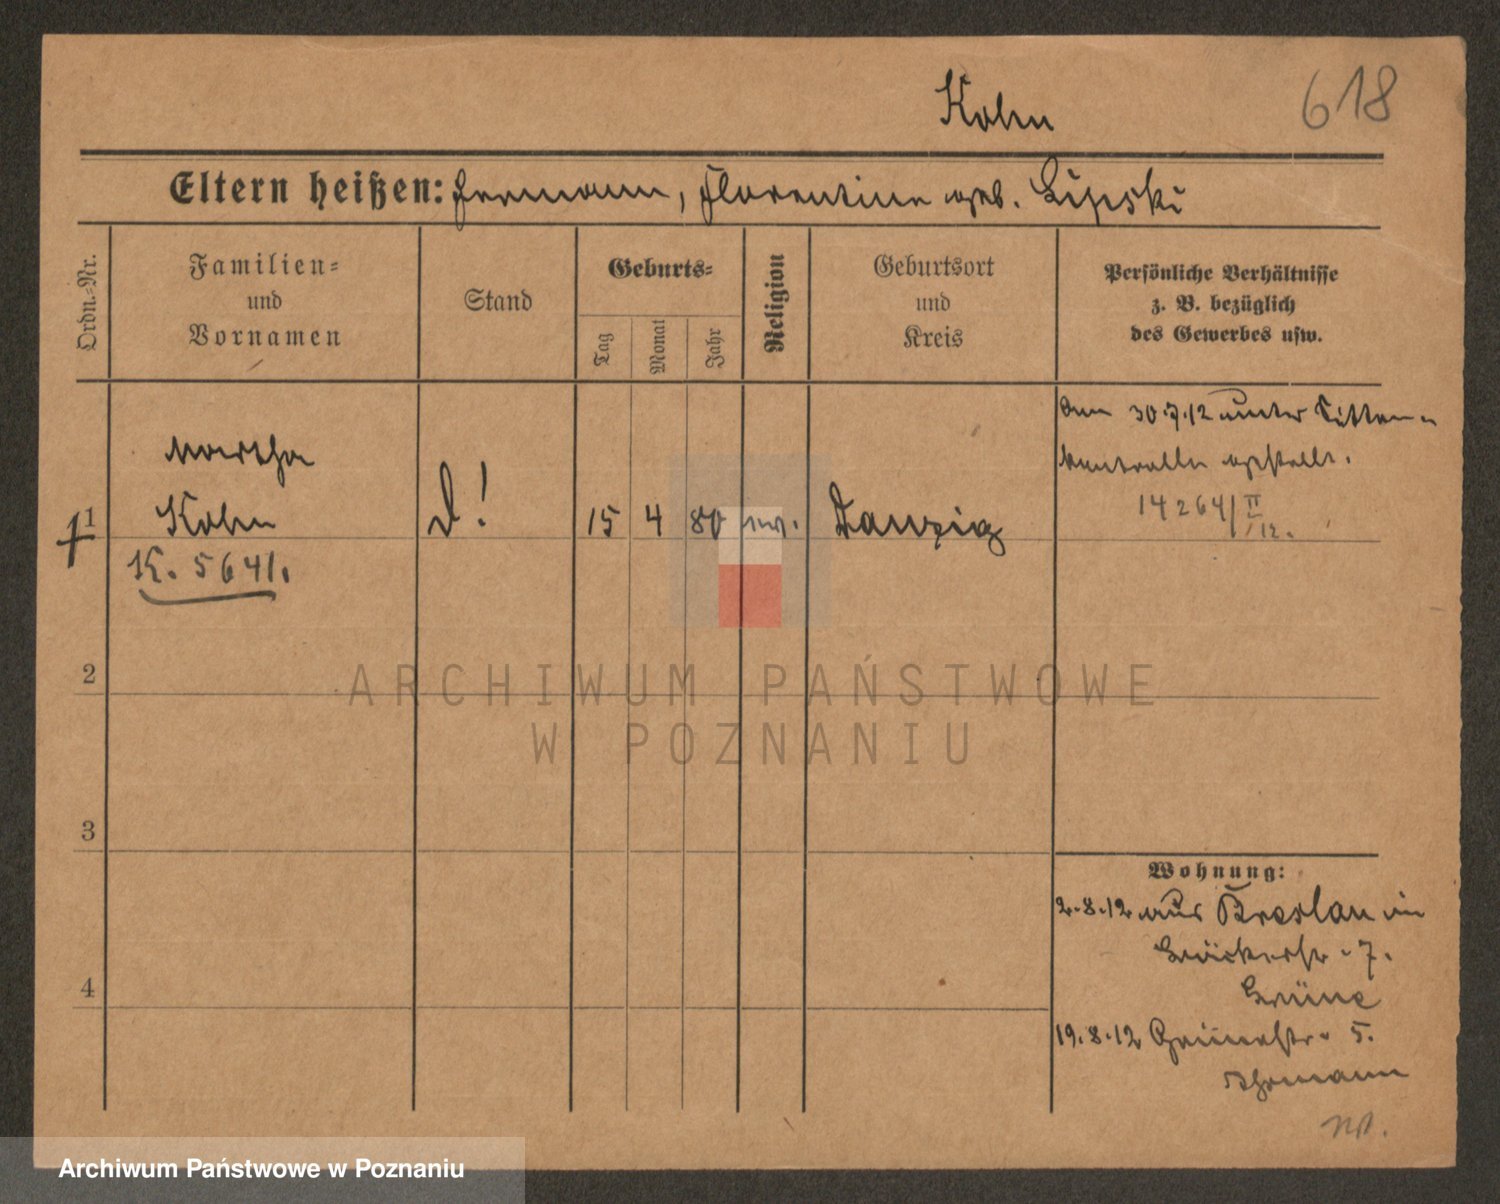 618
Kohn
Eltern heißen: Hermann, Florentine geb. Lipski
Ordn.=Nr.
Familien=
und
Vornamen
Stand
Geburts=
Tag
Monat
Jahr
Religion
Geburtsort
und
Kreis
Persönliche Verhältnisse
z. B. bezüglich
des Gewerbes usw.
1
Martha
Kohn
K. 5641.
d!
15
4
80
Danzig
Am 30.7.12 unter Sitten-
kontrolle gestellt.
14264/II
/12.
2
3
4
Wohnung:
2.8.12 aus Breslau in
Bäckerstr. 7.
19.8.12 Grünestr. 5.
ARCHIWUM PAŃSTWOWE
W POZNANIU
Archiwum Państwowe w Poznaniu